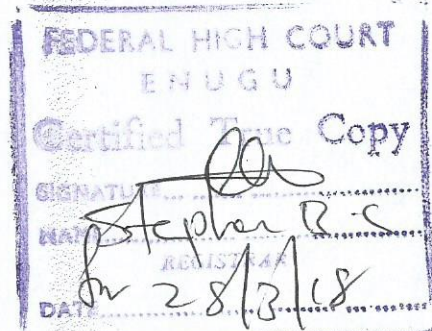 FEDERAL HIGH COURT
ENUGU
Certified True Copy
SIGNATURE
NAME Stephen B. C
REGISTRAR
for 28/3/18
DATE